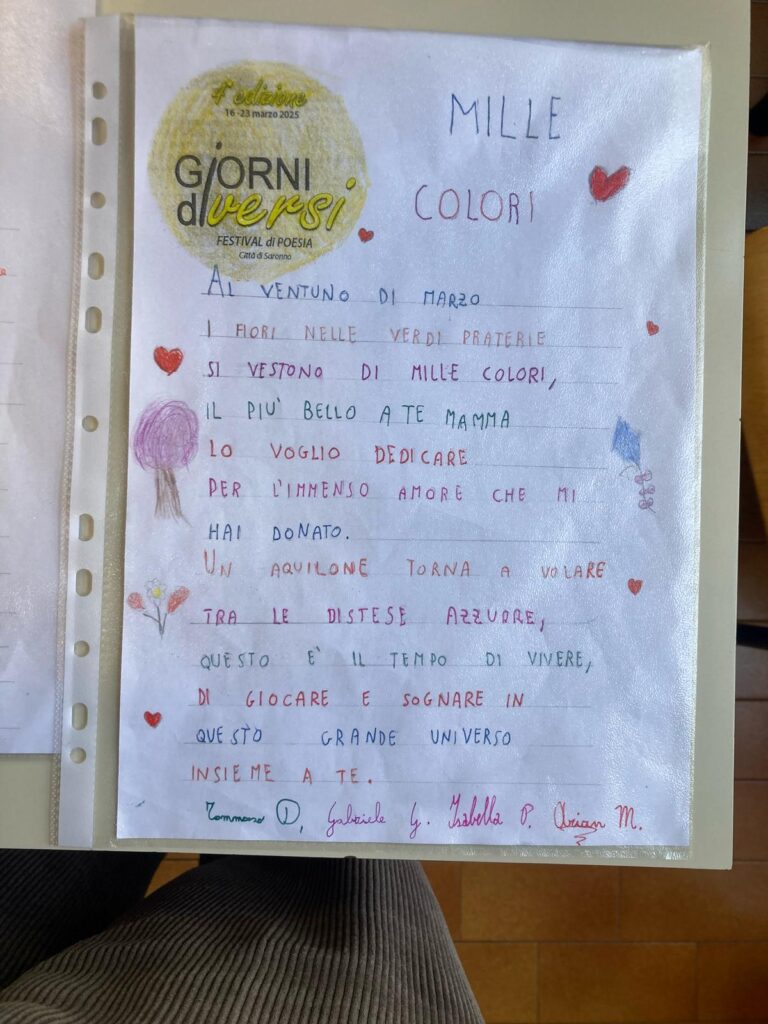 4ª edizione
16 -23 marzo 2025
GiORNI
diversi
FESTIVAL di POESIA
Città di Saronno
MILLE
COLORI
AL VENTUNO DI MARZO
I FIORI NELLE VERDI PRATERIE
SI VESTONO DI MILLE COLORI,
IL PIU' BELLO A TE MAMMA
LO VOGLIO DEDICARE
PER L'IMMENSO AMORE CHE MI
HAI DONATO.
UN AQUILONE TORNA A VOLARE
TRA LE DISTESE AZZURRE,
QUESTO E' IL TEMPO DI VIVERE,
DI GIOCARE E SOGNARE IN
QUESTO GRANDE UNIVERSO
INSIEME A TE.
Tommaso D, Gabriele G. Isabella P. Arian M.